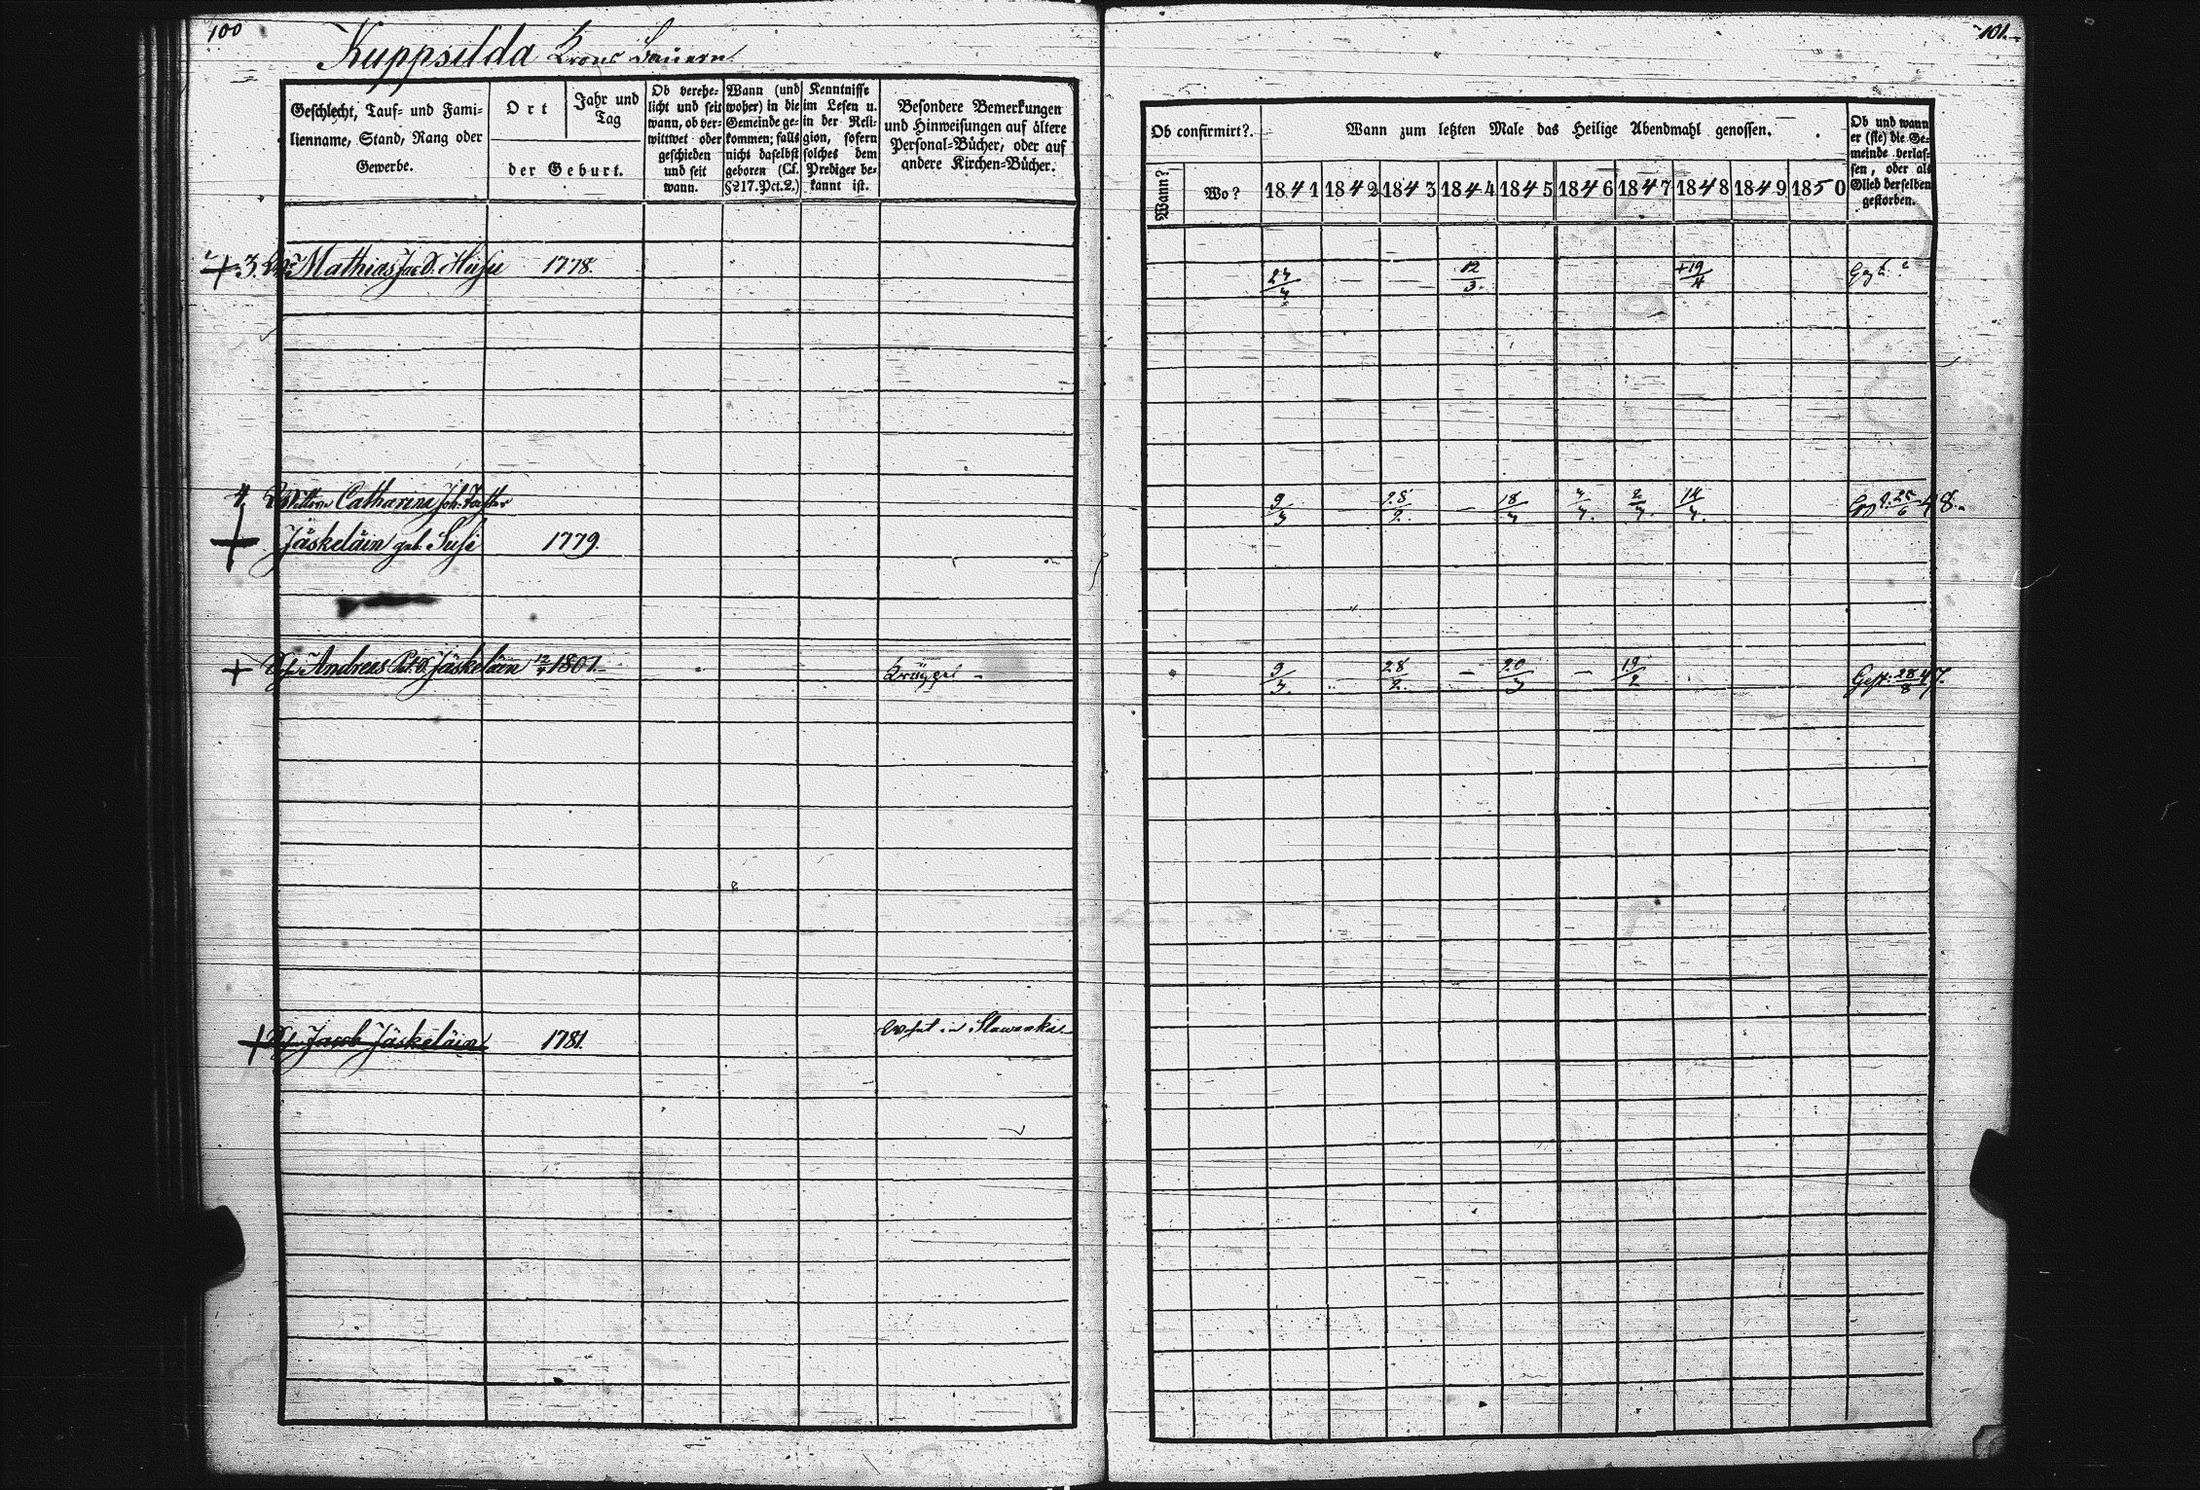 100
Kuppsilda Krons Bauern
Geschlecht, Tauf- und Fami-
lienname, Stand, Rang oder
Gewerbe.
Ort
Jahr und
Tag
der Geburt.
Ob verehe-
licht und seit
wann, ob ver-
wittwet oder
geschieden
und seit
wann.
Wann (und
woher) in die
Gemeinde ge-
kommen; falls
nicht daselbst
geboren (Cf.
§217.Pct.2.)
Kenntnisse
im Lesen u.
in der Reli-
gion, sofern
solches dem
Prediger be-
kannt ist.
Besondere Bemerkungen
und Hinweisungen auf ältere
Personal-Bücher, oder auf
andere Kirchen-Bücher.
3. Mathias Jac. S. 1778.
4 Catharina Joh. Tochter
Jäskeläin geb. Susi 1779.
Andreas S. Jäskeläin 12/4 1801. Krüppel
Jacob Jäskeläin 1781. in Slawanka
101.
Ob confirmirt?
Wann?
Wo?
Wann zum letzten Male das Heilige Abendmahl genossen.
1841 1842 1843 1844 1845 1846 1847 1848 1849 1850
Ob und wann
er (sie) die Ge-
meinde verlas-
sen, oder als
Glied derselben
gestorben.
12/3. +19/4
9/3 28/2. 18/3 2/3. 14/3. 25/6 48.
9/3. 28/2. 20/3 19/2 Gest. 28/8 47.